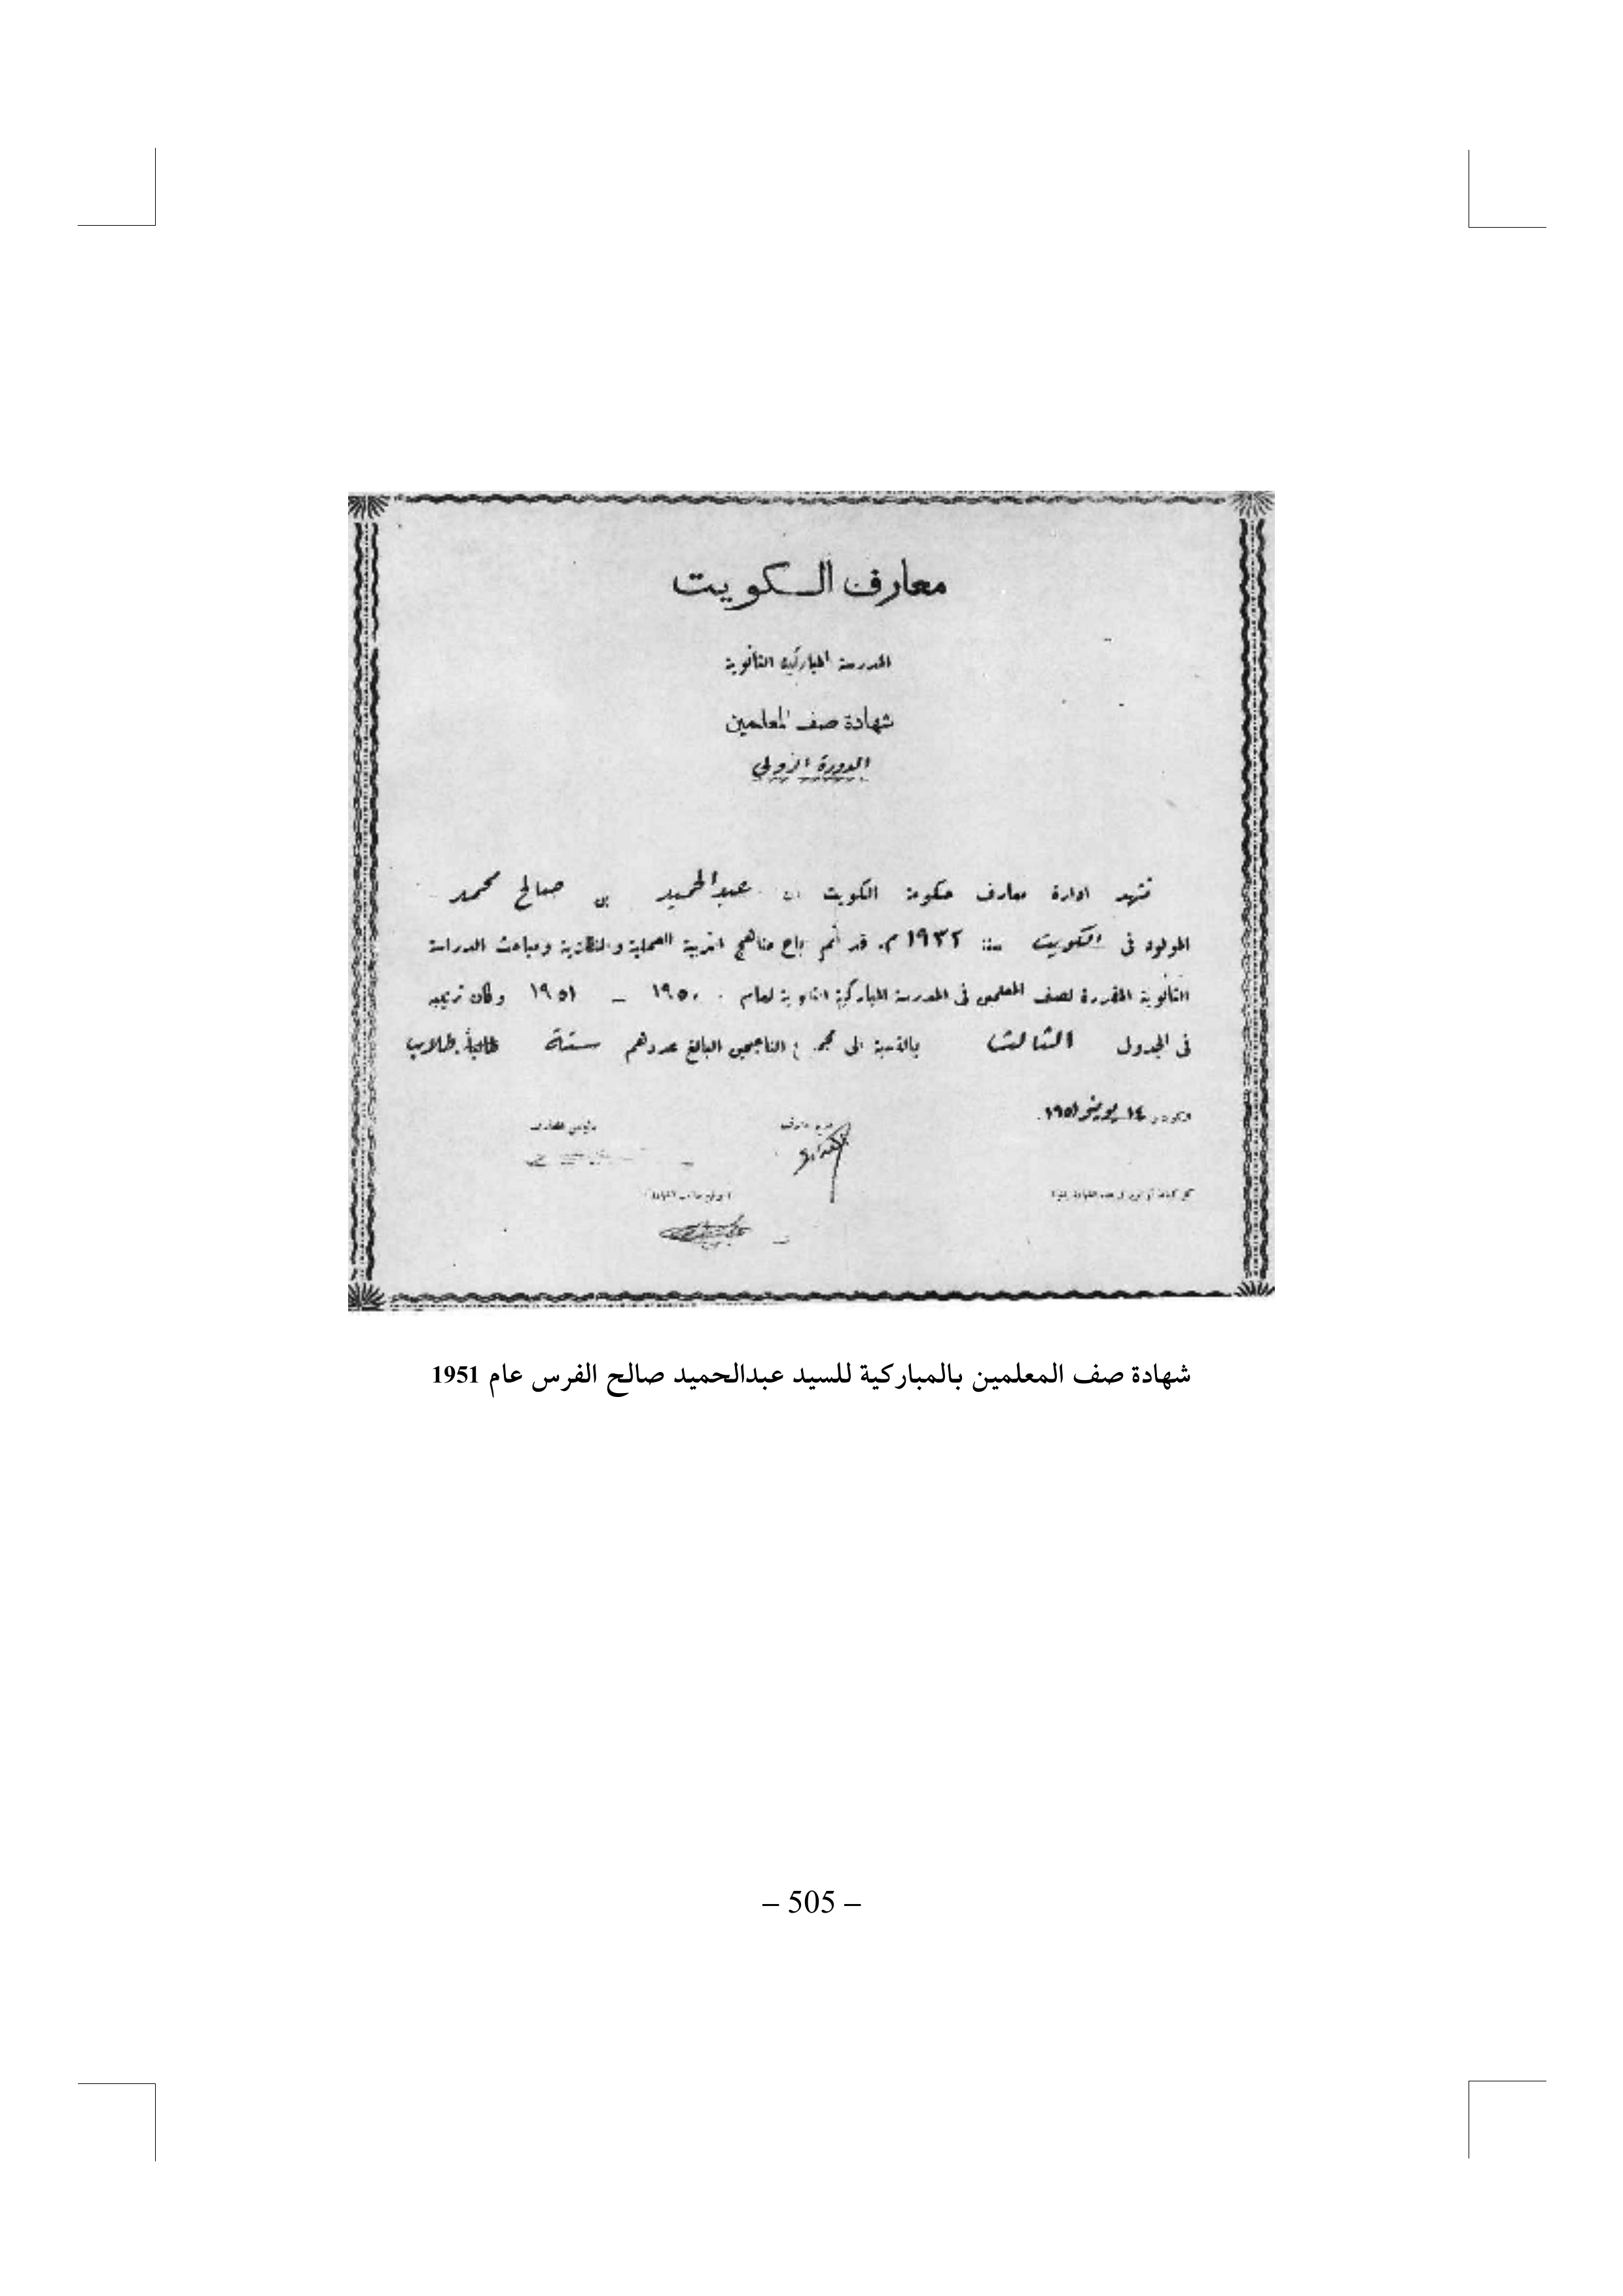 معارف الكويت
المدرسة المباركية الثانوية
شهادة صف المعلمين
الدورة الأولى
تشهد ادارة معارف حكومة الكويت ان عبدالحميد بن صالح محمد
المولود في الكويت سنة ١٩٣٢ م. قد أتم مناهج التربية العملية والنظرية ومباحث الدراسة
الثانوية المقررة لصف المعلمين في المدرسة المباركية الثانوية لعام ١٩٥٠ – ١٩٥١ وكان ترتيبه
في الجدول الثالث بالنسبة الى مجموع الناجحين البالغ عددهم ستة
١٤ يونيو ١٩٥١
رئيس المعارف
شهادة صف المعلمين بالمباركية للسيد عبدالحميد صالح الفرس عام 1951
– 505 –